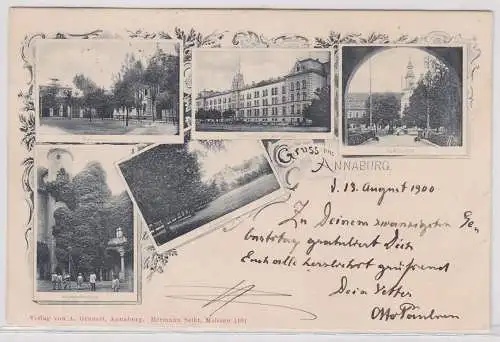 Gruss aus
ANNABURG.
d. 13. August 1900
Zu Deinem zwanzigsten Ge-
burtstag gratuliert Dich
Euch alle herzlichst grüssend
Dein Vetter
Otto
Verlag von A. Grunert, Annaburg. Hermann Seibt, Meissen